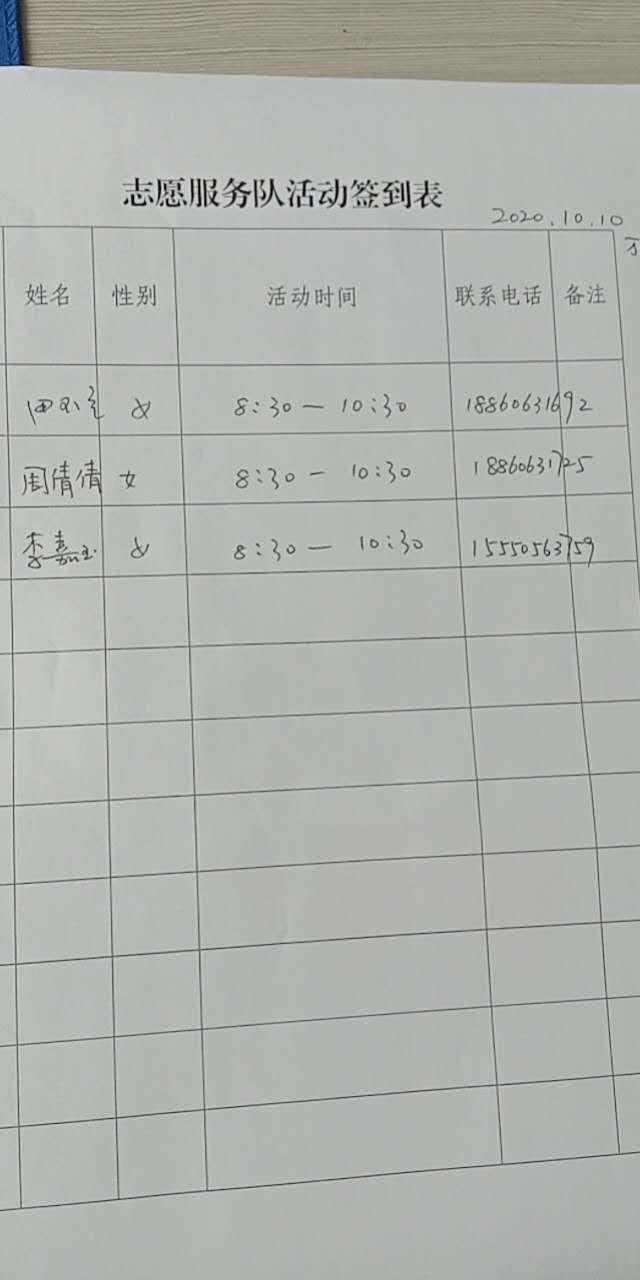 志愿服务队活动签到表
2020.10.10
姓名 性别 活动时间 联系电话 备注
田 女 8:30—10:30 18860631692
周倩倩 女 8:30—10:30 18860631725
李嘉 女 8:30—10:30 15550563759